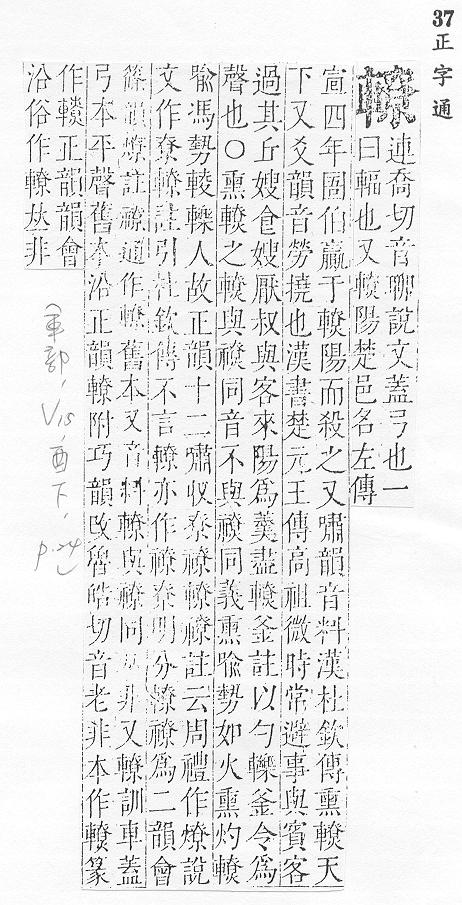 37 正字通
轑
連喬切音聊說文蓋弓也一
曰輻也又轑陽楚邑名左傳
宣四年圄伯嬴于轑陽而殺之又嘯韻音料漢杜欽傳熏轑天
下又爻韻音勞撓也漢書楚元王傳高祖微時常避事與賓客
過其丘嫂食嫂厭叔與客來陽為羹盡轑釜註以勺轢釜令為
聲也○熏轑之轑與𥛰同音不與𥛰同義熏喻勢如火熏灼轑
喻馮勢輘轢人故正韻十二嘯收尞𥛰轑𥛰註云周禮作燎說
文作尞轑註引杜欽傳不言轑亦作𥛰尞明分轑𥛰為二韻會
篠韻燎註𥛰通作轑舊本又音料轑與𥛰同𠀤非又轑訓車蓋
弓本平聲舊本沿正韻轑附巧韻改魯皓切音老非本作轑篆
作轑正韻韻會
沿俗作轑𠀤非
(車部, V15, 酉下, p.24)